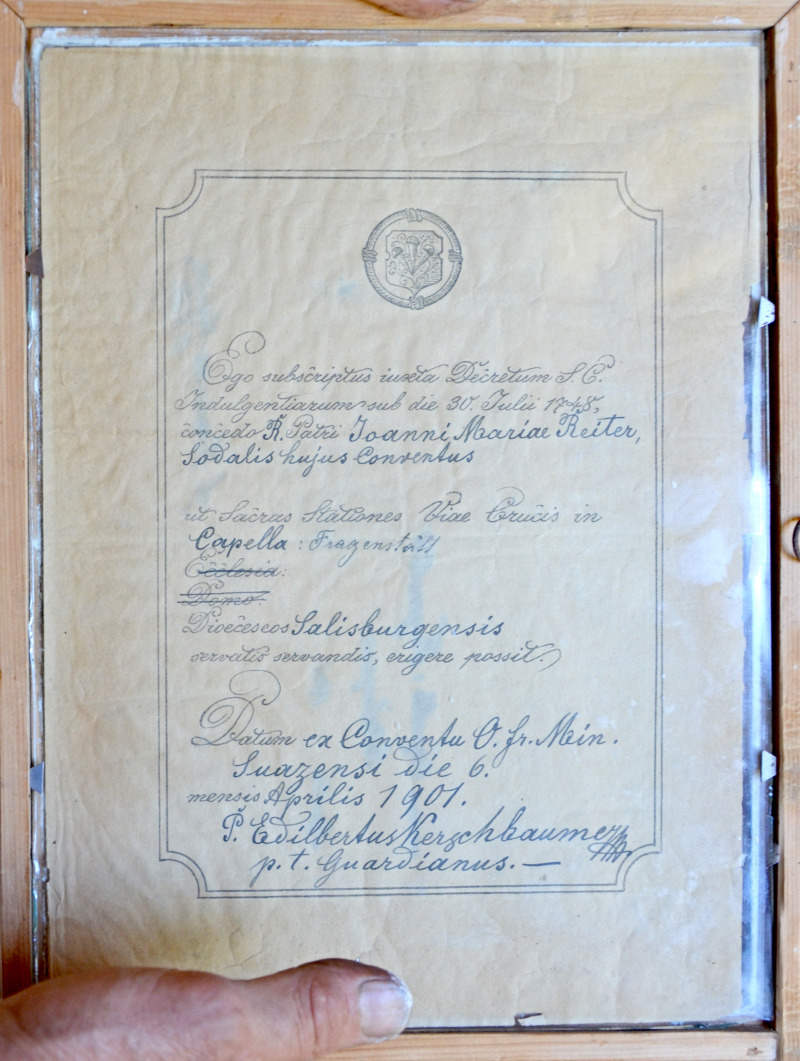 Ego subscriptus iuxta Decretum S. C.
Indulgentiarum sub die 30. Iulii 1748,
concedo R. Patri Joanni Mariae Reiter,
Sodalis hujus Conventus
ut Sacras Stationes Viae Crucis in
Capella : Fragenstätt
Ecclesia:
Domo:
Dioeceseos Salisburgensis
servatis servandis, erigere possit.
Datum ex Conventu O. fr. Min.
Suazensi die 6.
mensis Aprilis 1901.
P. Edilbertus Kerschbaumer
p. t. Guardianus. —